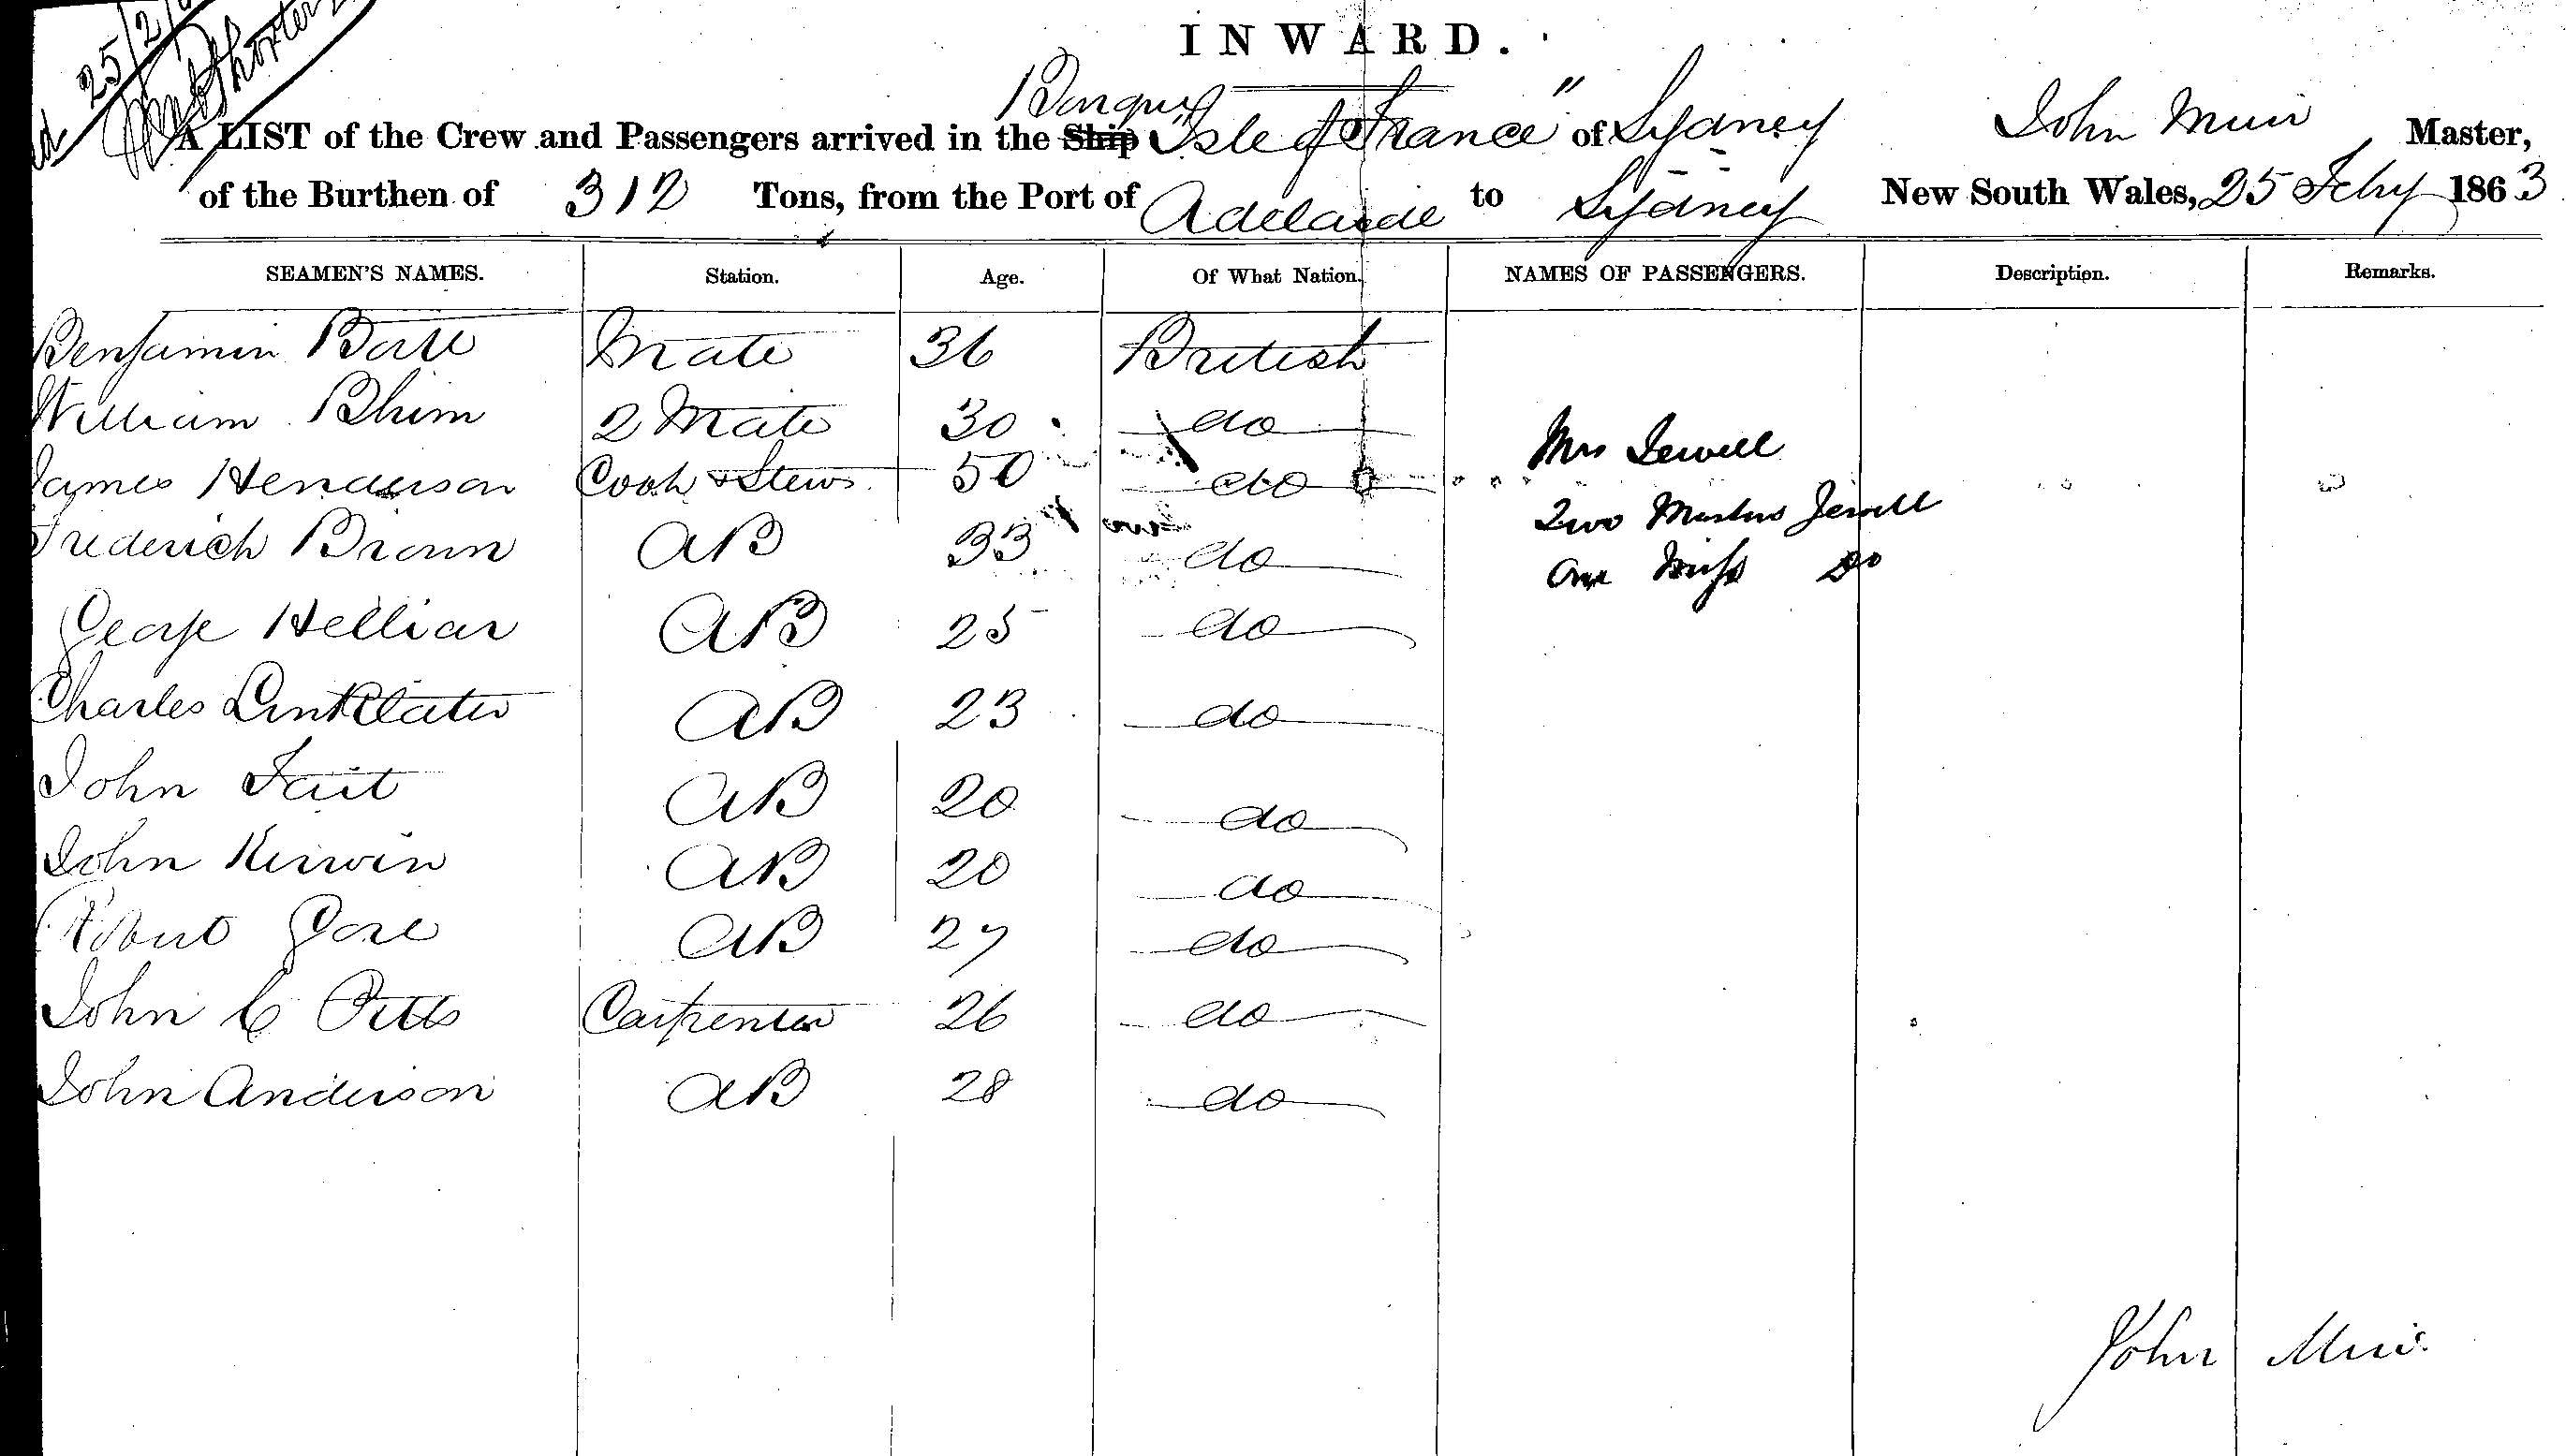 25/2/
INWARD.
Barque
A LIST of the Crew and Passengers arrived in the Ship "Isle of France" of Sydney John Muir Master,
of the Burthen of 312 Tons, from the Port of Adelaide to Sydney New South Wales, 25 Feby 1863
SEAMEN'S NAMES. Station. Age. Of What Nation. NAMES OF PASSENGERS. Description. Remarks.
Benjamin Mate 36 British
William 2 Mate 30 do Mrs Jewell
James Henderson Cook & Stew 50 do
Two Masters Jewell
Frederick Brown AB 33 do
One Miss Do
George Helliar AB 25 do
Charles Linklater AB 23 do
John Tait AB 20 do
John Kirwin AB 20 do
Robert Gore AB 27 do
John C Pitts Carpenter 26 do
John Anderson AB 28 do
John Muir